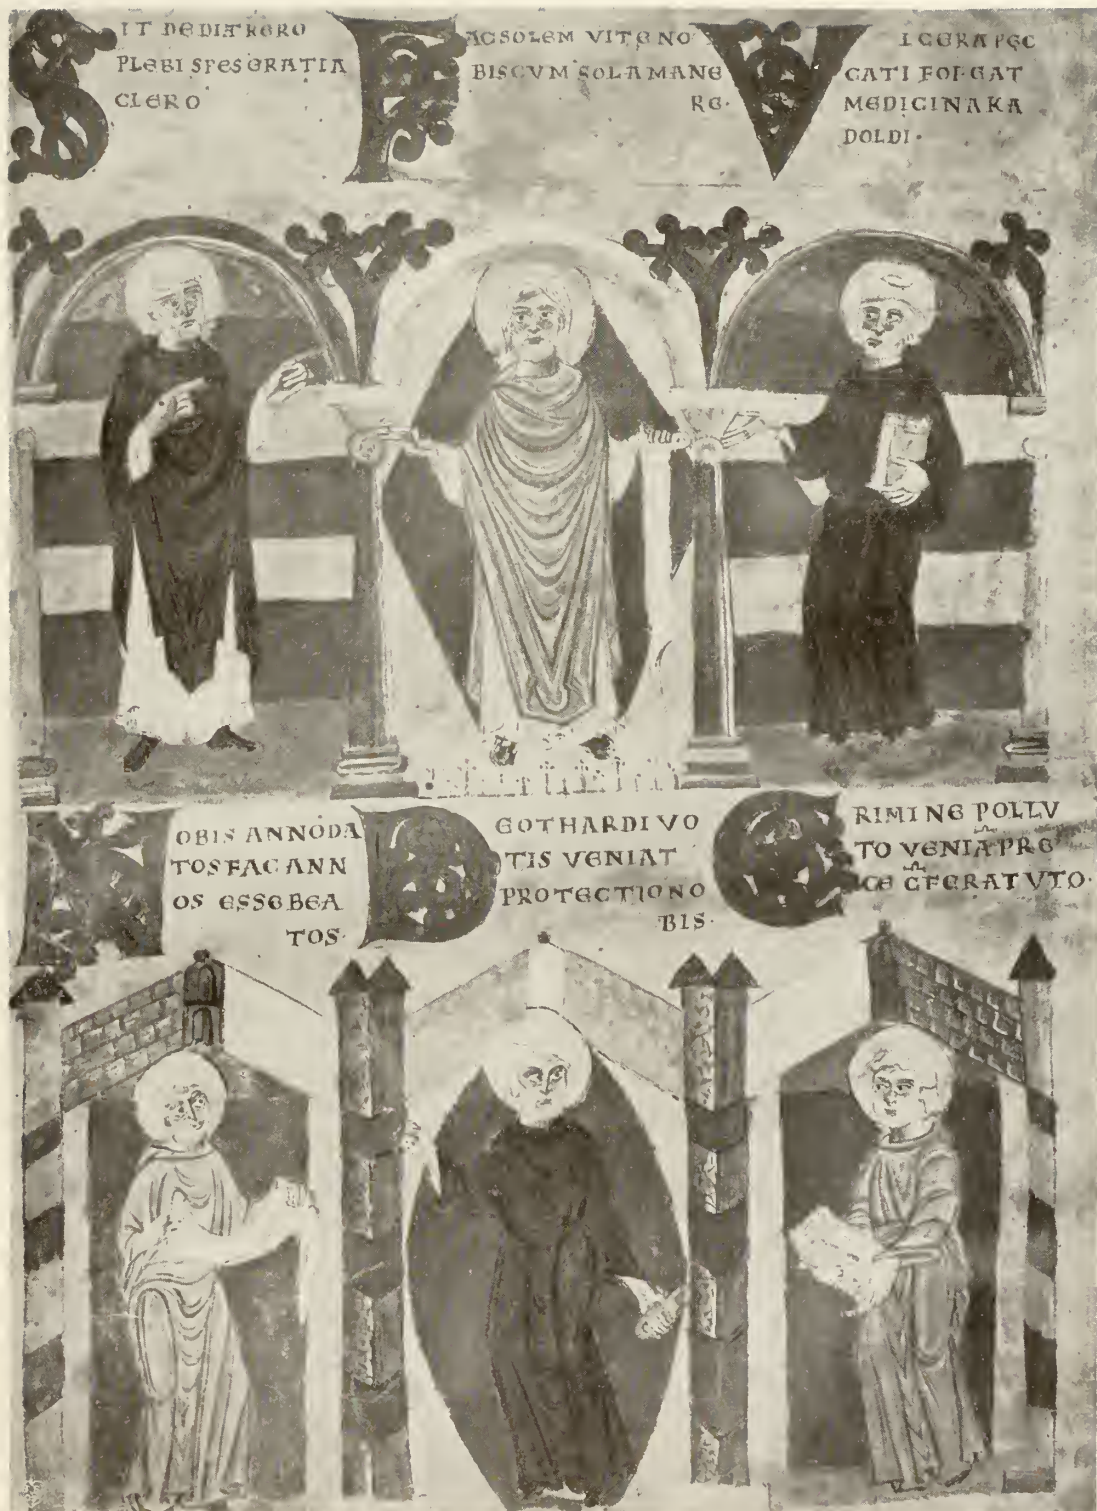 SIT
PLEBI SPES GRATIA
CLERO
FAC SOLEM VITE NO
BISCVM SOLA MANE
RE·
VLCERA PEC
CATI FOVEAT
MEDICINA KA
DOLDI·
NOBIS ANNO DA
TOS FAC ANN
OS ESSE BEA
TOS·
DEOTHARDI VO
TIS VENIAT
PROTECTIO NO
BIS·
CRIMINE POLLV
TO VENIA PRE
CE CFERAT VTO·